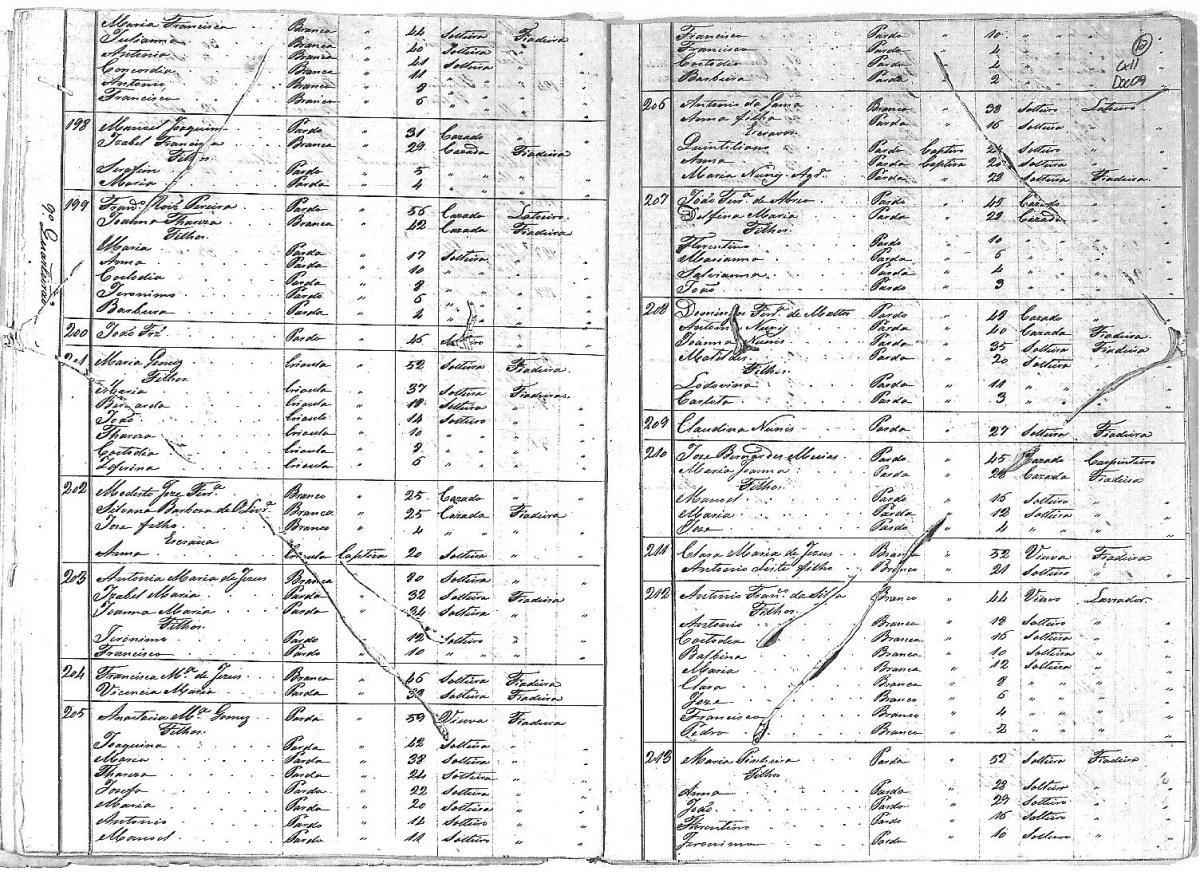 Maria Francisca Branca " 44 Solteira Fiadeira
Julianna Branca " 40 Solteira "
Antonia Branca " 41 Solteira "
Concordia Branca " 11 " "
Antonio Branco " 8 " "
Francisca Branca " 6 " "
198 Manoel Joaquim Pardo " 31 Cazado "
Izabel Francisca Branca " 29 Cazada Fiadeira
Filhos
Serafim Pardo " 5 " "
Maria Parda " 4 " "
9º Quarteirão
199 Franco. Pereira Pardo " 56 Cazado Lateiro
Joanna Thareza Branca " 42 Cazada Fiadeira
Filhos
Maria Parda " 17 Solteira "
Anna Parda " 10 " "
Costodia Parda " 8 " "
Jeronimo Pardo " 6 " "
Barbara Parda " 4 " "
200 João Pardo " 46 "
201 Maria Gomez Crioula " 52 Solteira Fiadeira
Filhos
Maria Crioula " 37 Solteira Fiadeiras
Bernarda Crioula " Solteira "
João Crioulo " 14 Solteiro "
Thareza Crioula " 10 " "
Costodia Crioula " " "
Zeferina Crioula " 6 " "
202 Modesto Joze Ferra. Branco " 25 Cazado "
Silvana Barboza de Branca " 25 Cazada Fiadeira
Joze filho Branco " 4 " "
Escrava
Anna Crioula Captiva 20 Solteira "
203 Antonia Maria de Jezus Branca " Solteira "
Izabel Maria Parda " 32 Solteira Fiadeira
Joanna Maria Parda " 24 Solteira "
Filhos
Jeronimo Pardo " 12 Solteiro "
Francisco Pardo " 10 " "
204 Francisca Ma. de Jezus Branca " 46 Solteira Fiadeira
Vicencia Maria Parda " Solteira Fiadeira
205 Anastacia Ma. Gomez Parda " 59 Viuva Fiadeira
Filhos
Joaquina Parda " 42 Solteira "
Maria Parda " 38 Solteira "
Thareza Parda " 24 Solteira "
Josefa Parda " 22 Solteira "
Maria Parda " 20 Solteira "
Antonio Pardo " 14 Solteiro "
Manoel Pardo " 11 Solteiro "
Francisca Parda " 10 " "
Francisco Pardo " 4 " "
Costodio Pardo " 4 " "
Barbara Parda " 2 " "
Doc09
206 Antonio da Gama Branco " 38 Solteiro Lateiro
Anna filha Parda " 16 Solteira "
Escravos
Quintiliano Pardo Captivo 24 Solteiro "
Anna Parda Captiva 20 Solteira "
Maria Nunes Agda. Parda " 29 Solteira Fiadeira
207 João Ferra. de Abreu Pardo " 45 Cazado
Delfina Maria Parda " 29 Cazada
Filhos
Florentino Pardo " 10 " "
Marianna Parda " 6 " "
Salvianna Parda " 4 " "
João Pardo " 3 " "
208 Domingos Ferra. de Mattos Pardo " 49 Cazado "
Antonia Nunes Parda " 40 Cazada Fiadeira
Joanna Nunes Parda " 35 Solteira Fiadeira
Matildes Parda " 20 Solteira
Filhos
Lodoviana Parda " 11 " "
Carlota Parda " 3 " "
209 Claudiana Nunes Parda " 27 Solteira Fiadeira
210 Joze Bernardes Mecias Pardo " 45 Cazado Carpinteiro
Maria Joanna Parda " 28 Cazada Fiadeira
Filhos
Manoel Pardo " 16 Solteiro "
Maria Parda " 12 Solteira "
Joze Pardo " 4 " "
211 Clara Maria de Jezus Branca " 52 Viuva Fiadeira
Antonio Leite filho Branco " 21 Solteiro "
212 Antonio Franco. da Silva Branco " 44 Viuvo Lavrador
Filhos
Antonio Branco " 18 Solteiro "
Costodia Branca " 16 Solteira "
Balbina Branca " 10 Solteira "
Maria Branca " 12 Solteira "
Clara Branca " 8 " "
Joze Branco " 6 " "
Francisco Branco " 4 " "
Pedro Branco " 2 " "
213 Maria Pinheira Parda " 52 Solteira Fiadeira
Filhos
Anna Parda " 28 Solteira "
João Pardo " 29 Solteiro "
Florentino Pardo " 16 Solteiro "
Jeronimo Pardo " 10 Solteiro "